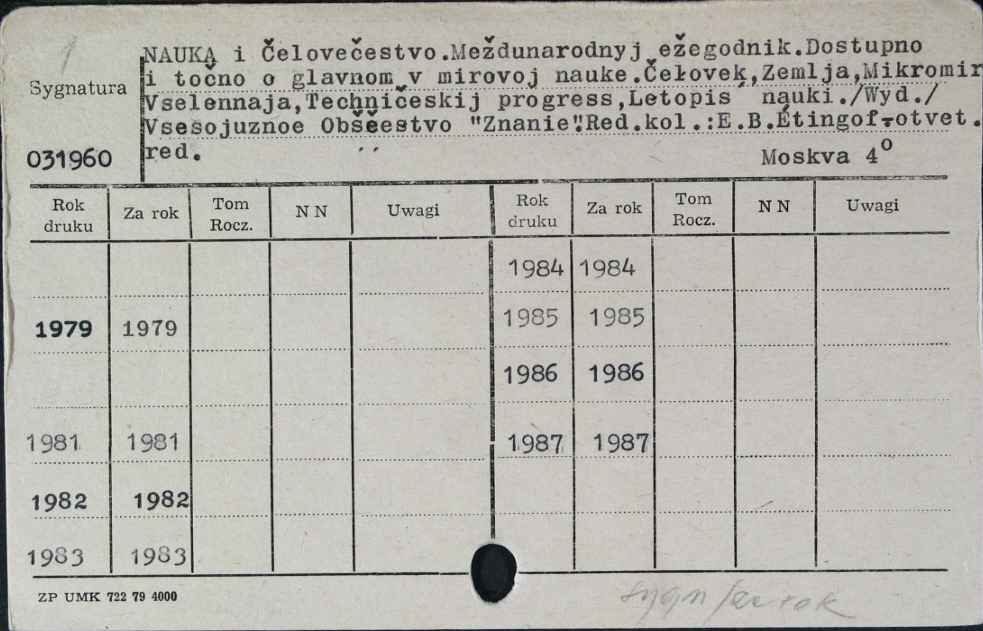 1
NAUKA i Čelovečestvo.Meždunarodnyj ežegodnik.Dostupno
Sygnatura
i točno o glavnom v mirovoj nauke.Čełovek,Zemlja,Mikromir
Vselennaja,Techničeskij progress,Letopis´ nauki./Wyd./
Vsesojuznoe Obščestvo "Znanie".Red.kol.:E.B.Etingof-otvet.
031960
red.
Moskva 4°
Rok druku Za rok Tom Rocz. NN Uwagi Rok druku Za rok Tom Rocz. NN Uwagi
1984 1984
1979 1979 1985 1985
1986 1986
1981 1981 1987 1987
1982 1982
1983 1983
ZP UMK 722 79 4000
sygn
rok